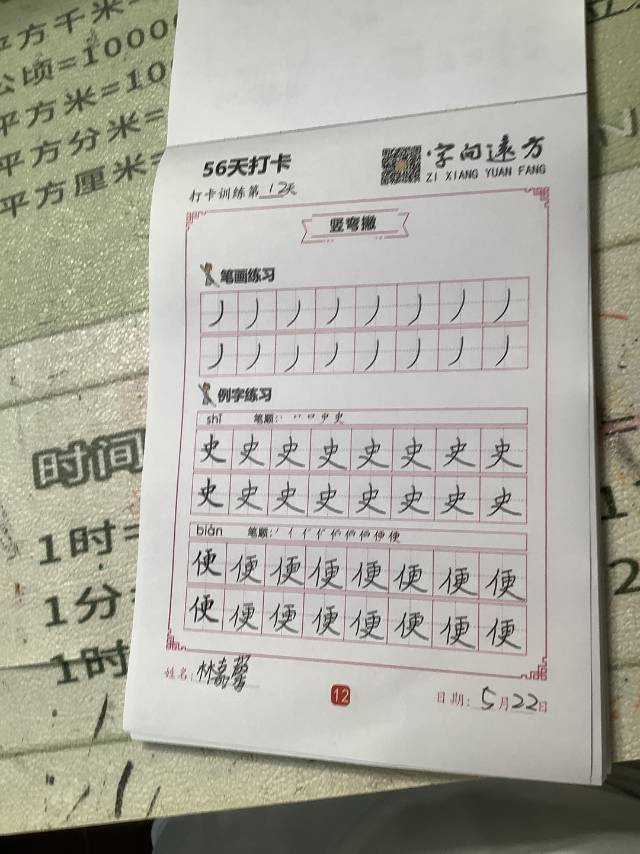 平方千米=
公顷=1000
平方米=10
平方分米=
平方厘米=
56天打卡
字向远方
ZI XIANG YUAN FANG
打卡训练第12天
竖弯撇
笔画练习
丿丿丿丿丿丿丿丿
丿丿丿丿丿丿丿丿
例字练习
shǐ 笔顺:
史史史史史史史史
史史史史史史史史
biàn 笔顺:
便便便便便便便便
便便便便便便便便
姓名:林嘉馨
12
日期:5月22日
时间
1时=
1分=
1时